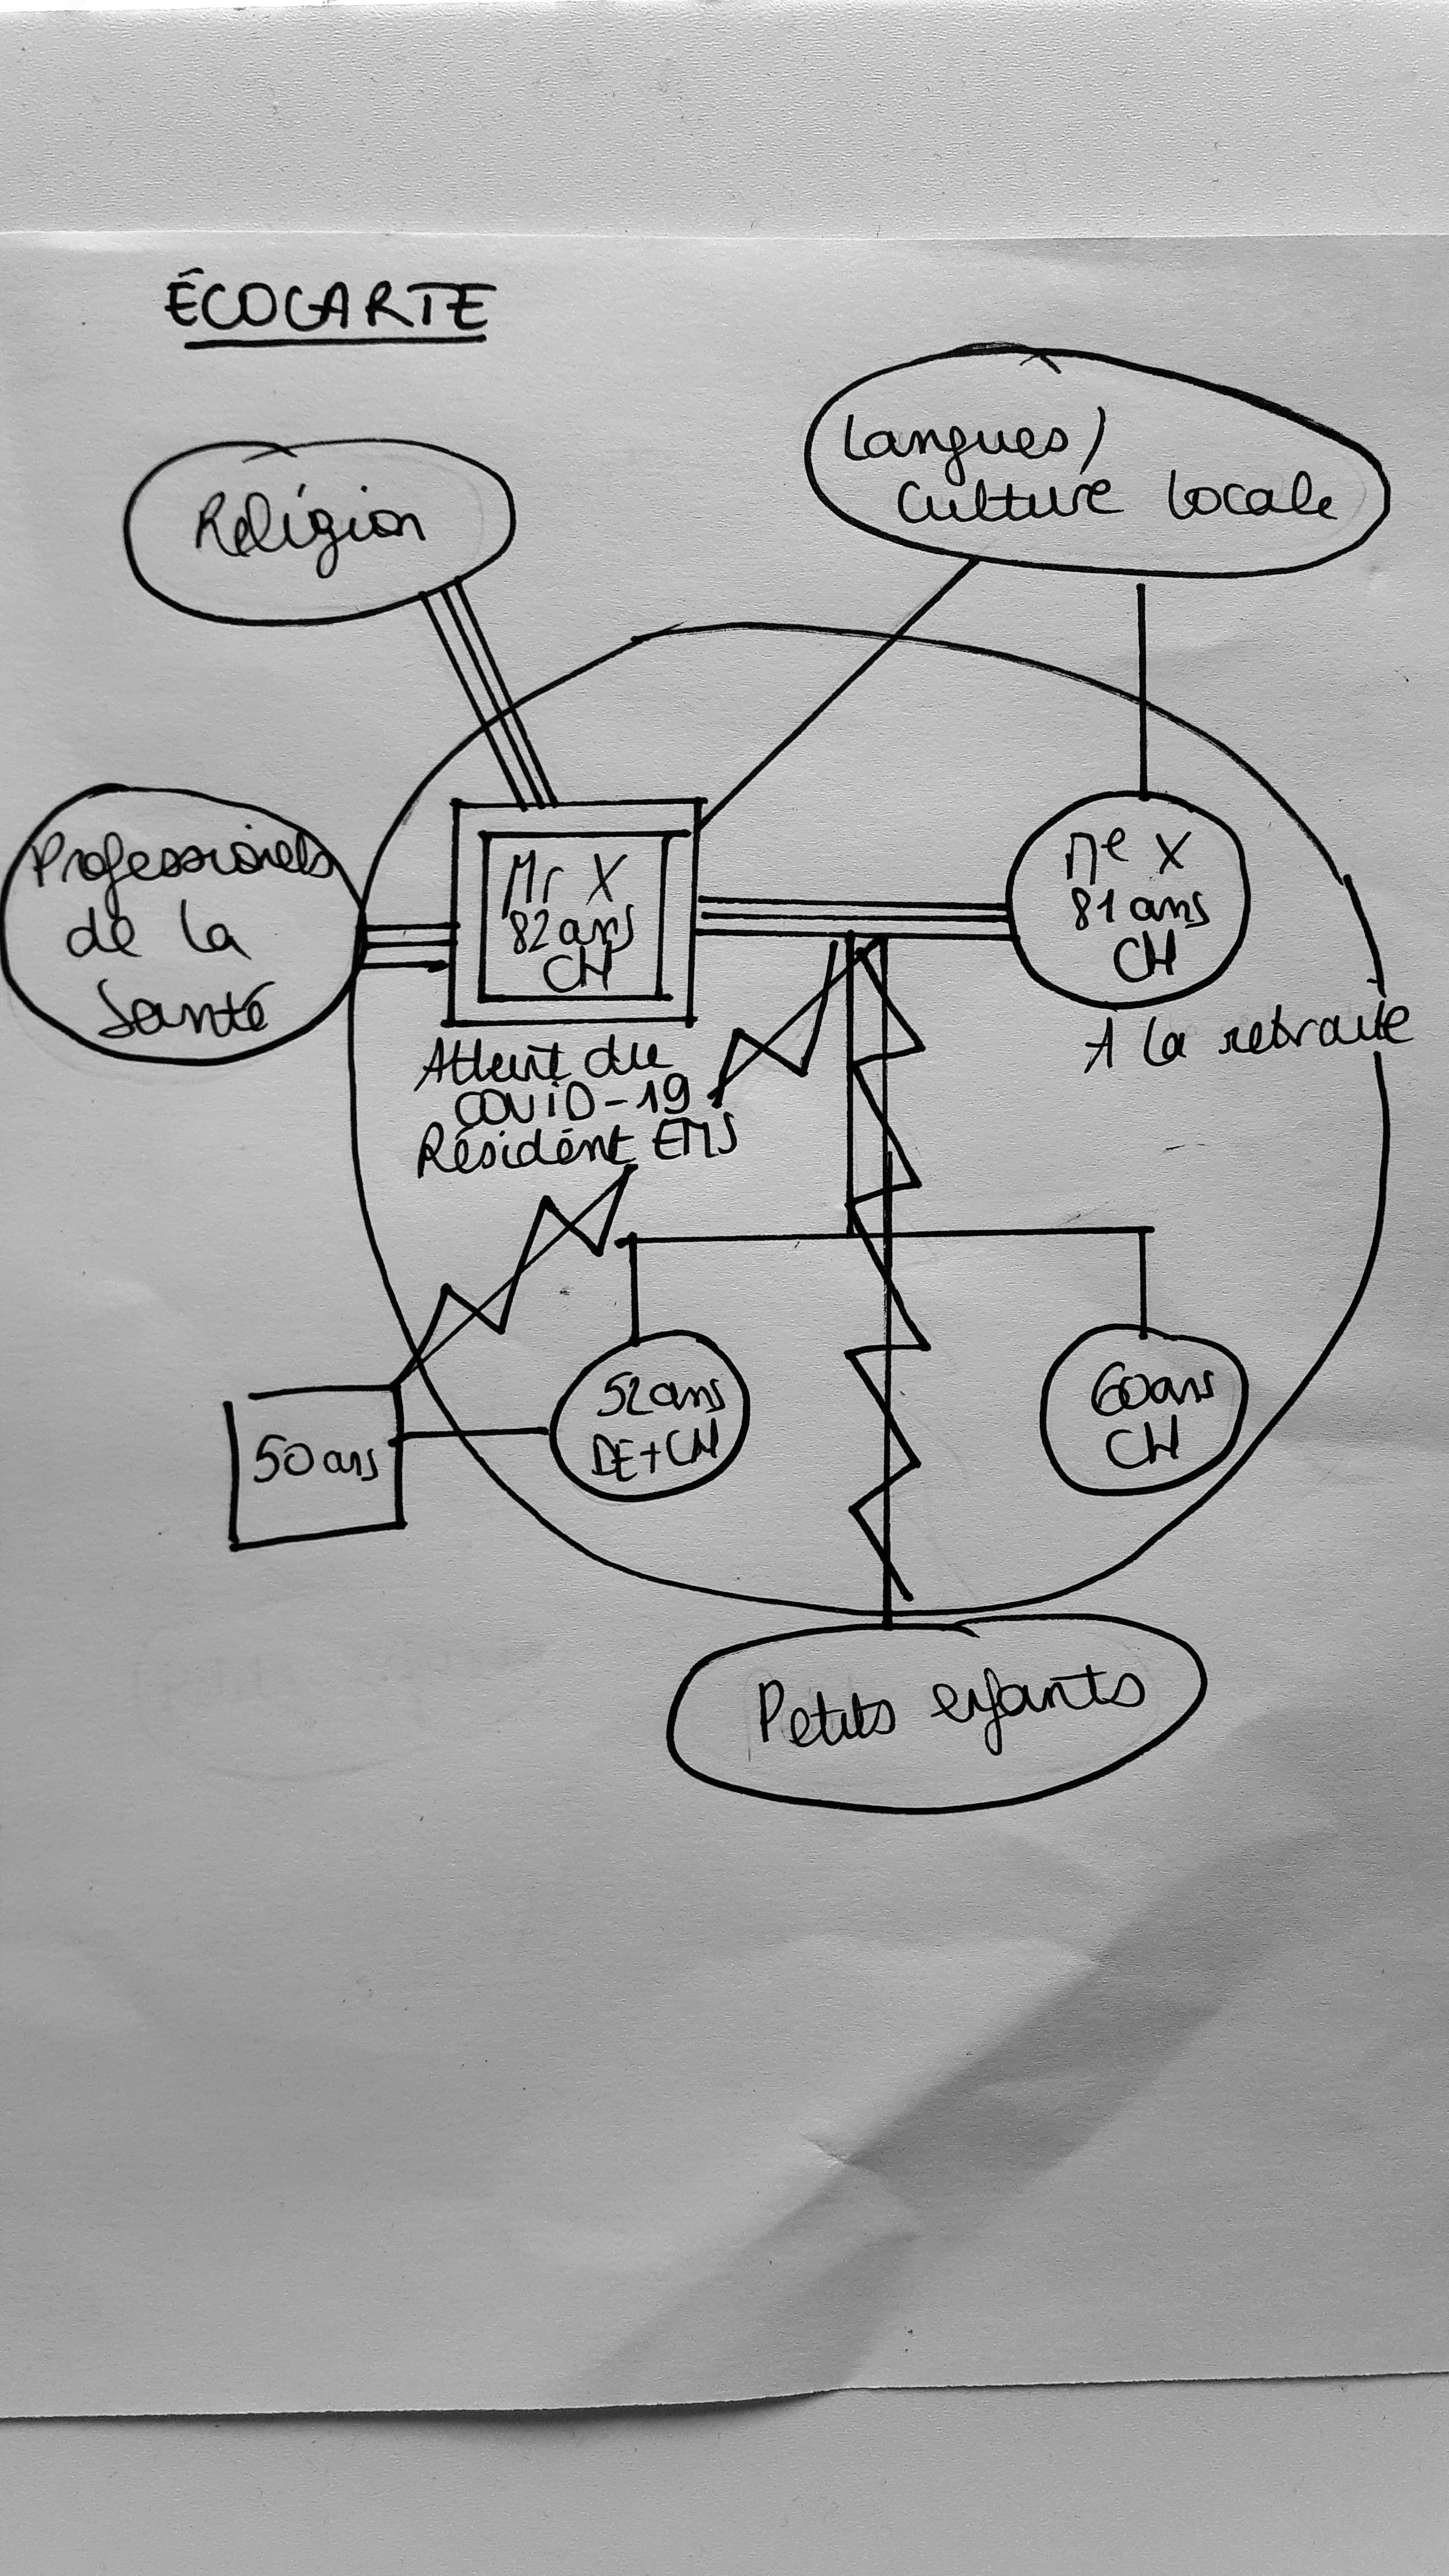 ÉCOCARTE
Réligion
Langues/
Culture locale
Professionels
de la
Santé
Mr X
82 ans
CH
Me X
81 ans
CH
A la retraite
Atteint du
COVID-19
Résident EMS
50 ans
52 ans
DE+CH
60 ans
CH
Petits enfants